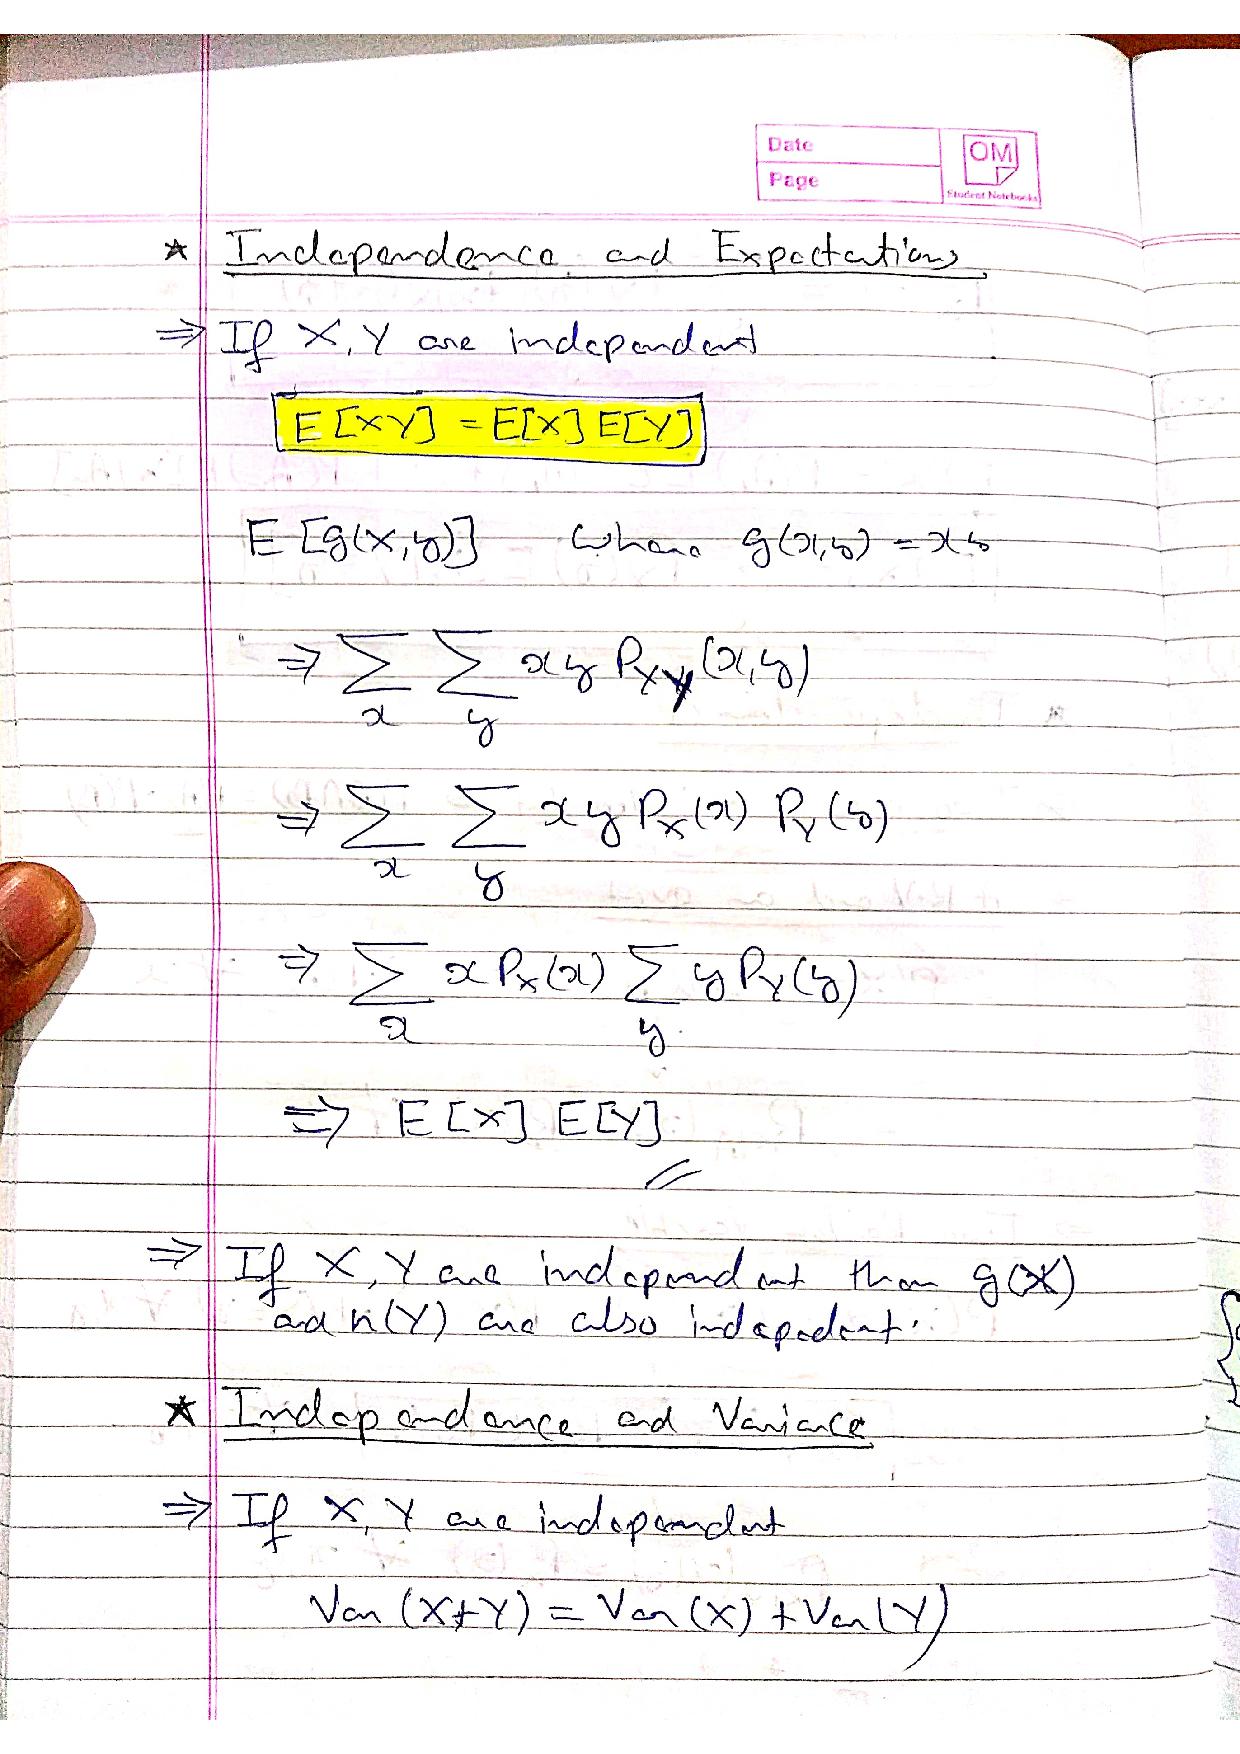 Date
Page
OM
Student Notebooks
★ Independence and Expectations
⇒ If X, Y are independent
E[XY] = E[X] E[Y]
E[g(X,y)] where g(x,y) = xy
⇒ ∑_x ∑_y xy P_XY(x,y)
⇒ ∑_x ∑_y xy P_X(x) P_Y(y)
⇒ ∑_x x P_X(x) ∑_y y P_Y(y)
⇒ E[X] E[Y]
⇒ If X, Y are independent then g(X)
and h(Y) are also indepedent.
★ Independence and Variance
⇒ If X, Y are independent
Var (X+Y) = Var (X) + Var (Y)